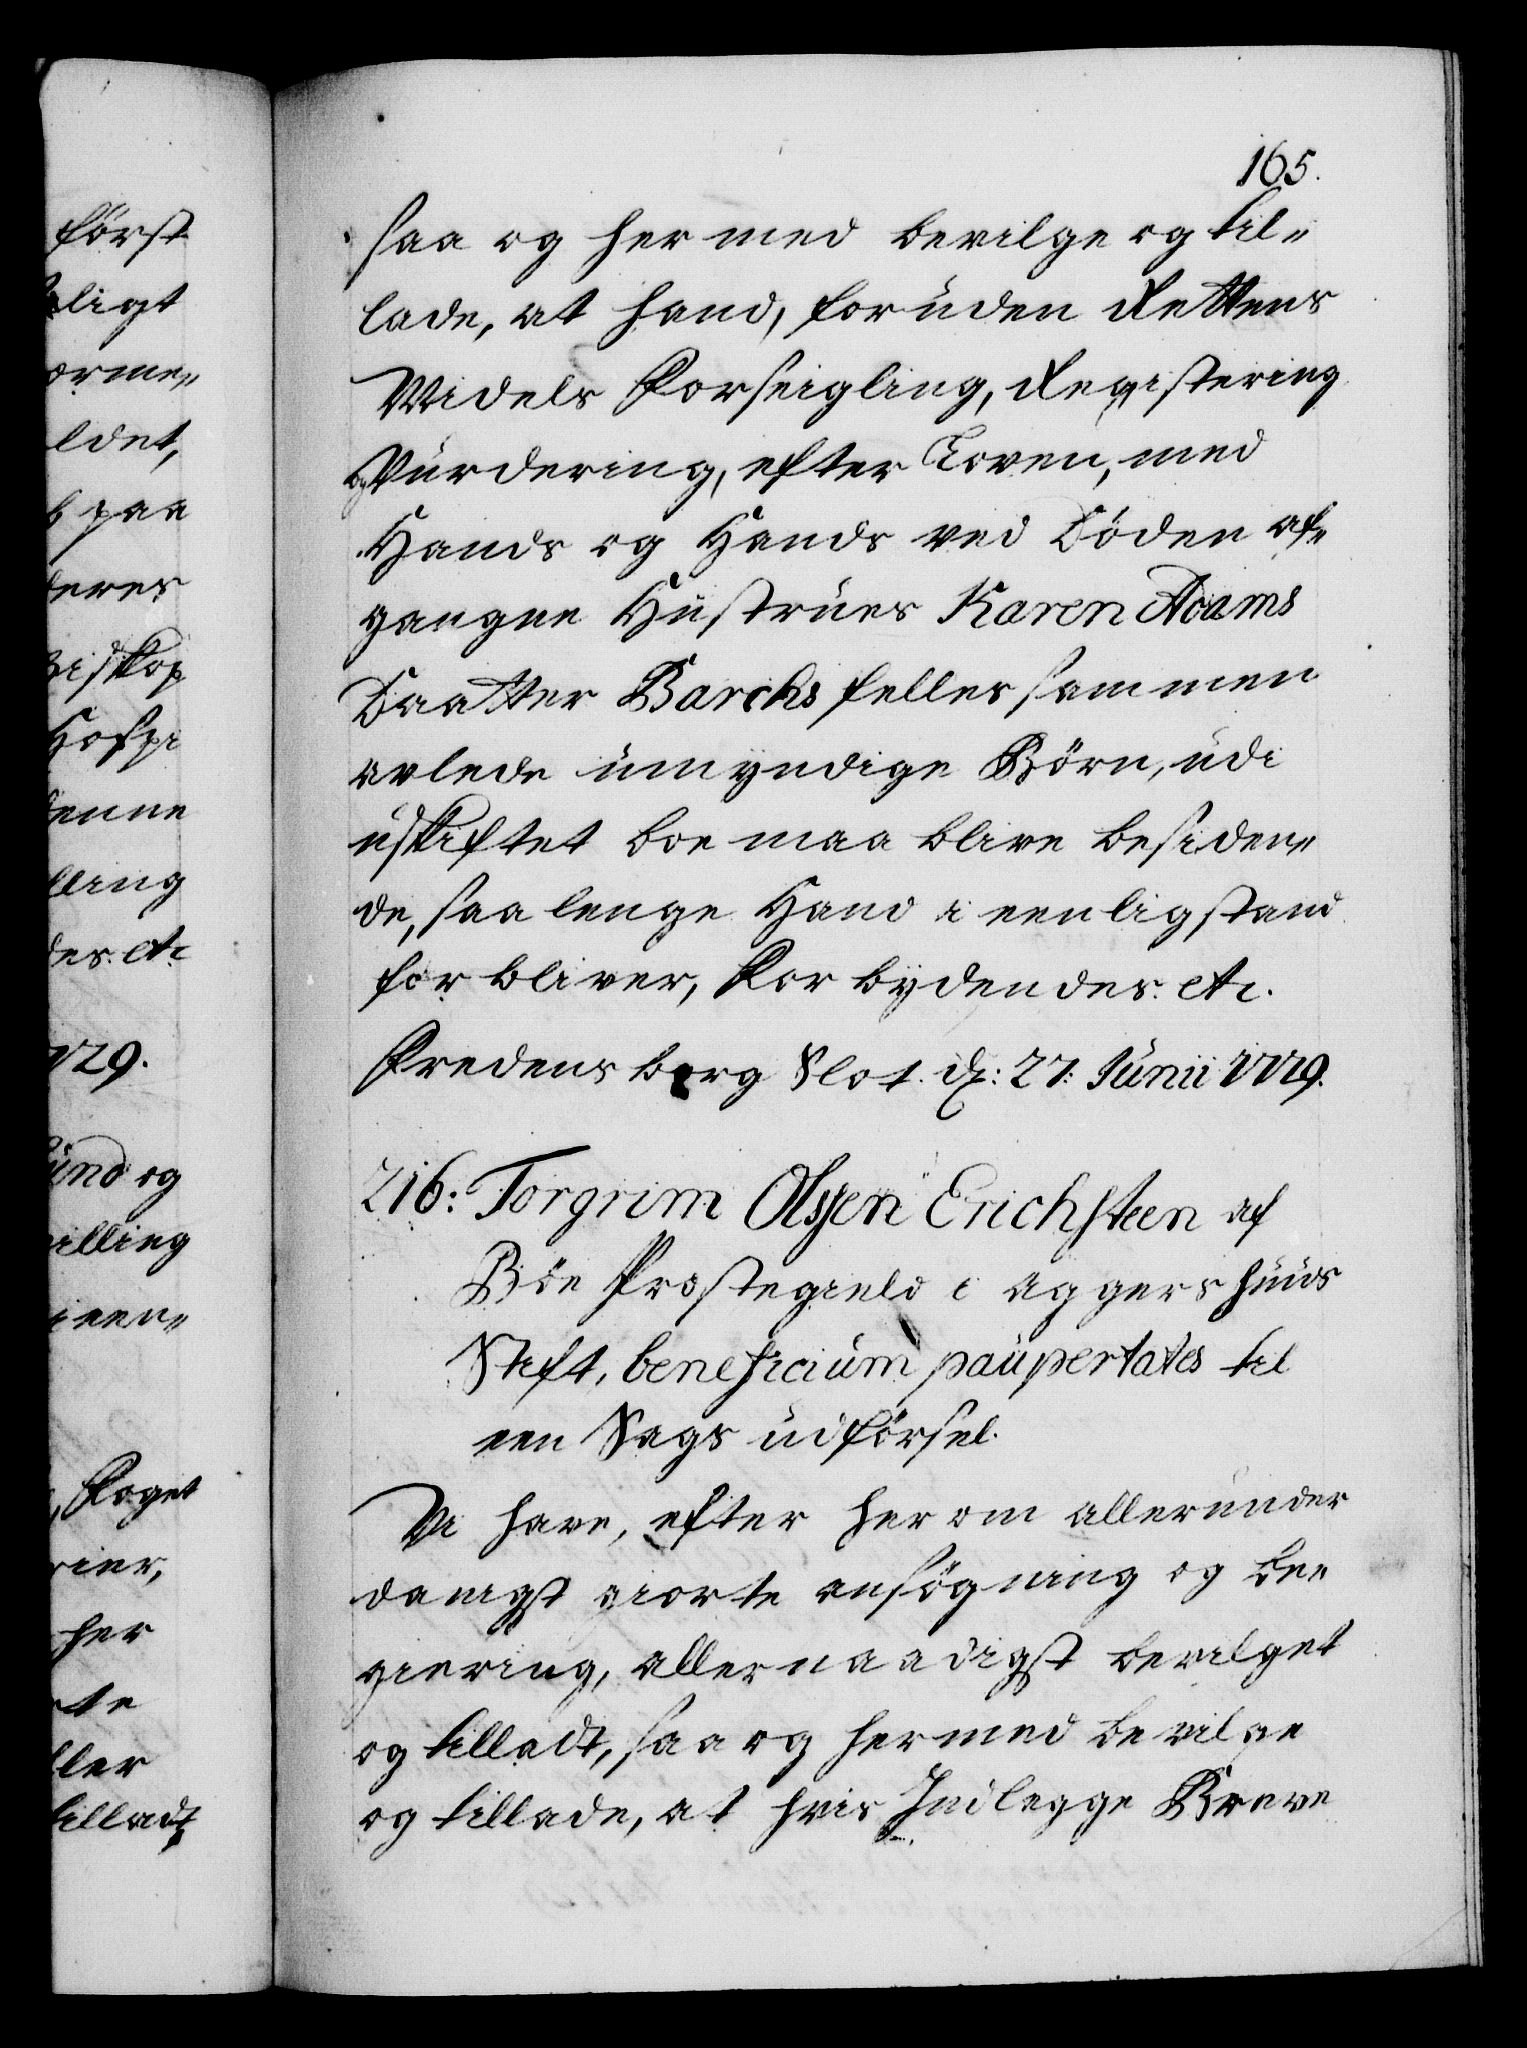 först
ligt
orme„
ldet,
b paa
deres
Biskop
Hospi
denne
lling
des. etc
1729.
und og
villing
i een„
, Foget
rier,
her
rte
ller
tilladt
165.
saa og her med bevilge og til„
lade, at hand, foruden Rettens
Midels Forseigling, Registering
og Vurdering, efter Loven, med
Hands og Hands ved Döden af„
gangne Hustrues Karen Adams
Daatter Barchs felles sammen
avlede umyndige Börn, udi
uskiftet boe maa blive besiden„
de, saa lenge Hand i eenligstand
for bliver, Forbydendes. etc.
Fredensborg Slot. d: 27: Junii 1729.
216: Torgrim Olssen Erichsteen af
Böe Prostegield i Aggershuus
Stift, beneficium paupertates til
een Sags udförsel.
Vi have, efter her om allerunder
danigst giorte ansögning og be„
giering, allernaadigst bevilget
og tilladt, saa og hermed bevilge
og tillade, at hvis Indlegge Breve